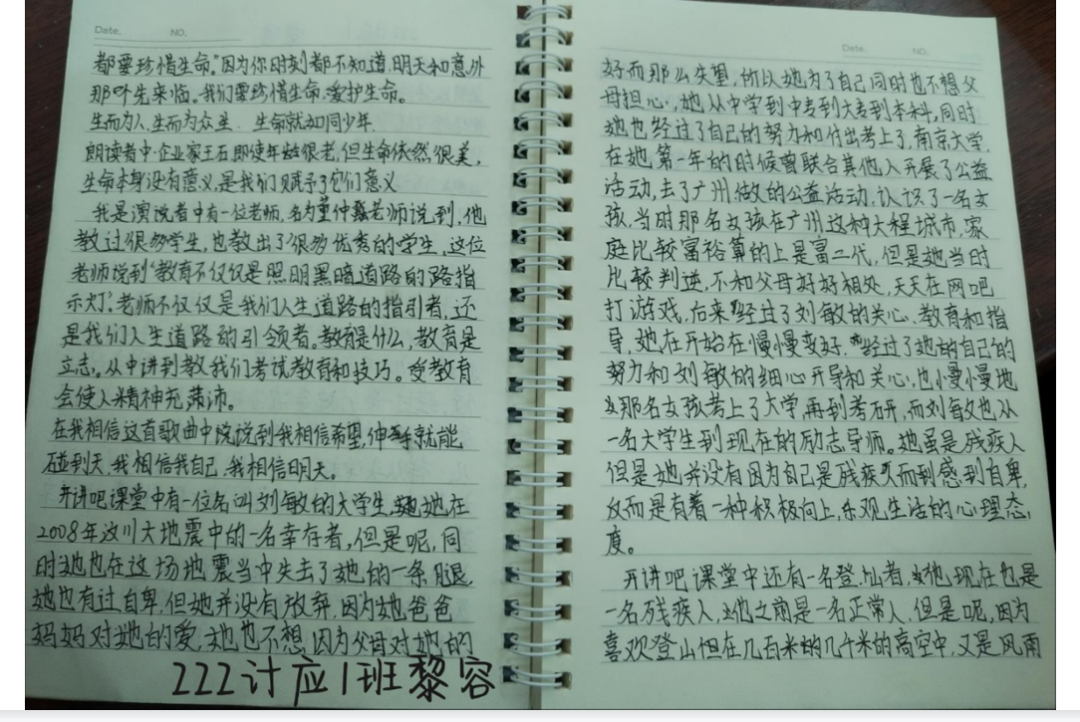 Date.    NO.
都要珍惜生命。"因为你时刻都不知道,明天和意外
那个先来临。我们要珍惜生命,爱护生命。
生而为人,生而为众生. 生命就如同少年.
朗读者中企业家王石即使年龄很老,但生命依然很美,
生命本身没有意义,是我们赋予了它们意义
我是演说者中有一位老师,名为董仲蠡老师说到,他
教过很多学生,也教出了很多优秀的学生,这位
老师说到"教育不仅仅是照明黑暗道路的路指
示灯"。老师不仅仅是我们人生道路的指引者,还
是我们人生道路的引领者。教育是什么,教育是
立志。从中讲到教我们考试教育和技巧。受教育
会使人精神充沛。
在我相信这首歌曲中说到我相信希望,伸手就能
碰到天,我相信我自己,我相信明天。
开讲吧课堂中有一位名叫刘敏的大学生,她在
2008年汶川大地震中的一名幸存者,但是呢,同
时她也在这场地震当中失去了她的一条腿,
她也有过自卑,但她并没有放弃,因为她爸爸
妈妈对她的爱,她也不想因为父母对她的
222计应1班黎容
Date.    NO.
好而那么失望,所以她为了自己同时也不想父
母担心,她从中学到中专到大专到本科,同时
她也经过了自己的努力和付出考上了南京大学,
在她第一年的时候曾联合其他人开展了公益
活动,去了广州做的公益活动,认识了一名女
孩,当时那名女孩在广州这种大程城市,家
庭比较富裕算的上是富二代,但是她当时
比较判逆,不和父母好好相处,天天在网吧
打游戏,后来经过了刘敏的关心、教育和指
导,她在开始在慢慢变好,经过了她的自己的
努力和刘敏的细心开导和关心,也慢慢地
那名女孩考上了大学,再到考研,而刘敏也从
一名大学生到现在的励志导师。她虽是残疾人
但是她并没有因为自己是残疾人而到感到自卑,
反而是有着一种积极向上,乐观生活的心理态
度。
开讲吧课堂中还有一名登山者,他现在也是
一名残疾人,他之前是一名正常人,但是呢,因为
喜欢登山但在几百米的几千米的高空中,又是风雨